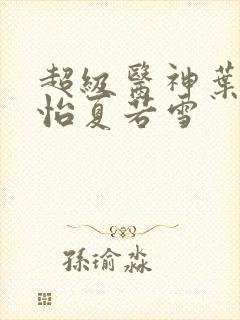 超級醫神葉
怡夏若雪
孫瑜淼